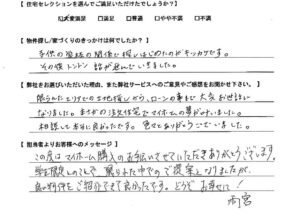 【 住宅セレクションを選んでご満足いただけたでしょうか？ 】
☑大変満足 □満足 □普通 □やや不満 □不満
【 物件探し/家づくりのきっかけは何でしたか？ 】
子供の学校の関係で探しはじめたのがキッカケです。
その後トントン話が進んでいきました。
【 弊社をお選びいただいた理由、また弊社サービスへのご意見やご感想をお聞かせ下さい。 】
限られたエリアでの土地探しから、ローンの事まで大変お世話に
なりました。まさかの注文住宅でマイホームの夢が叶いました。
相談して本当に良かったです。色々とありがとうございました。
【 担当者よりお客様へのメッセージ 】
この度はマイホーム購入のお手伝いさせていただきありがとうございます。
学区限定とのことで、限られた中での ご提案となりましたが、
良い物件をご紹介できて良かったです。どうぞお幸せに！